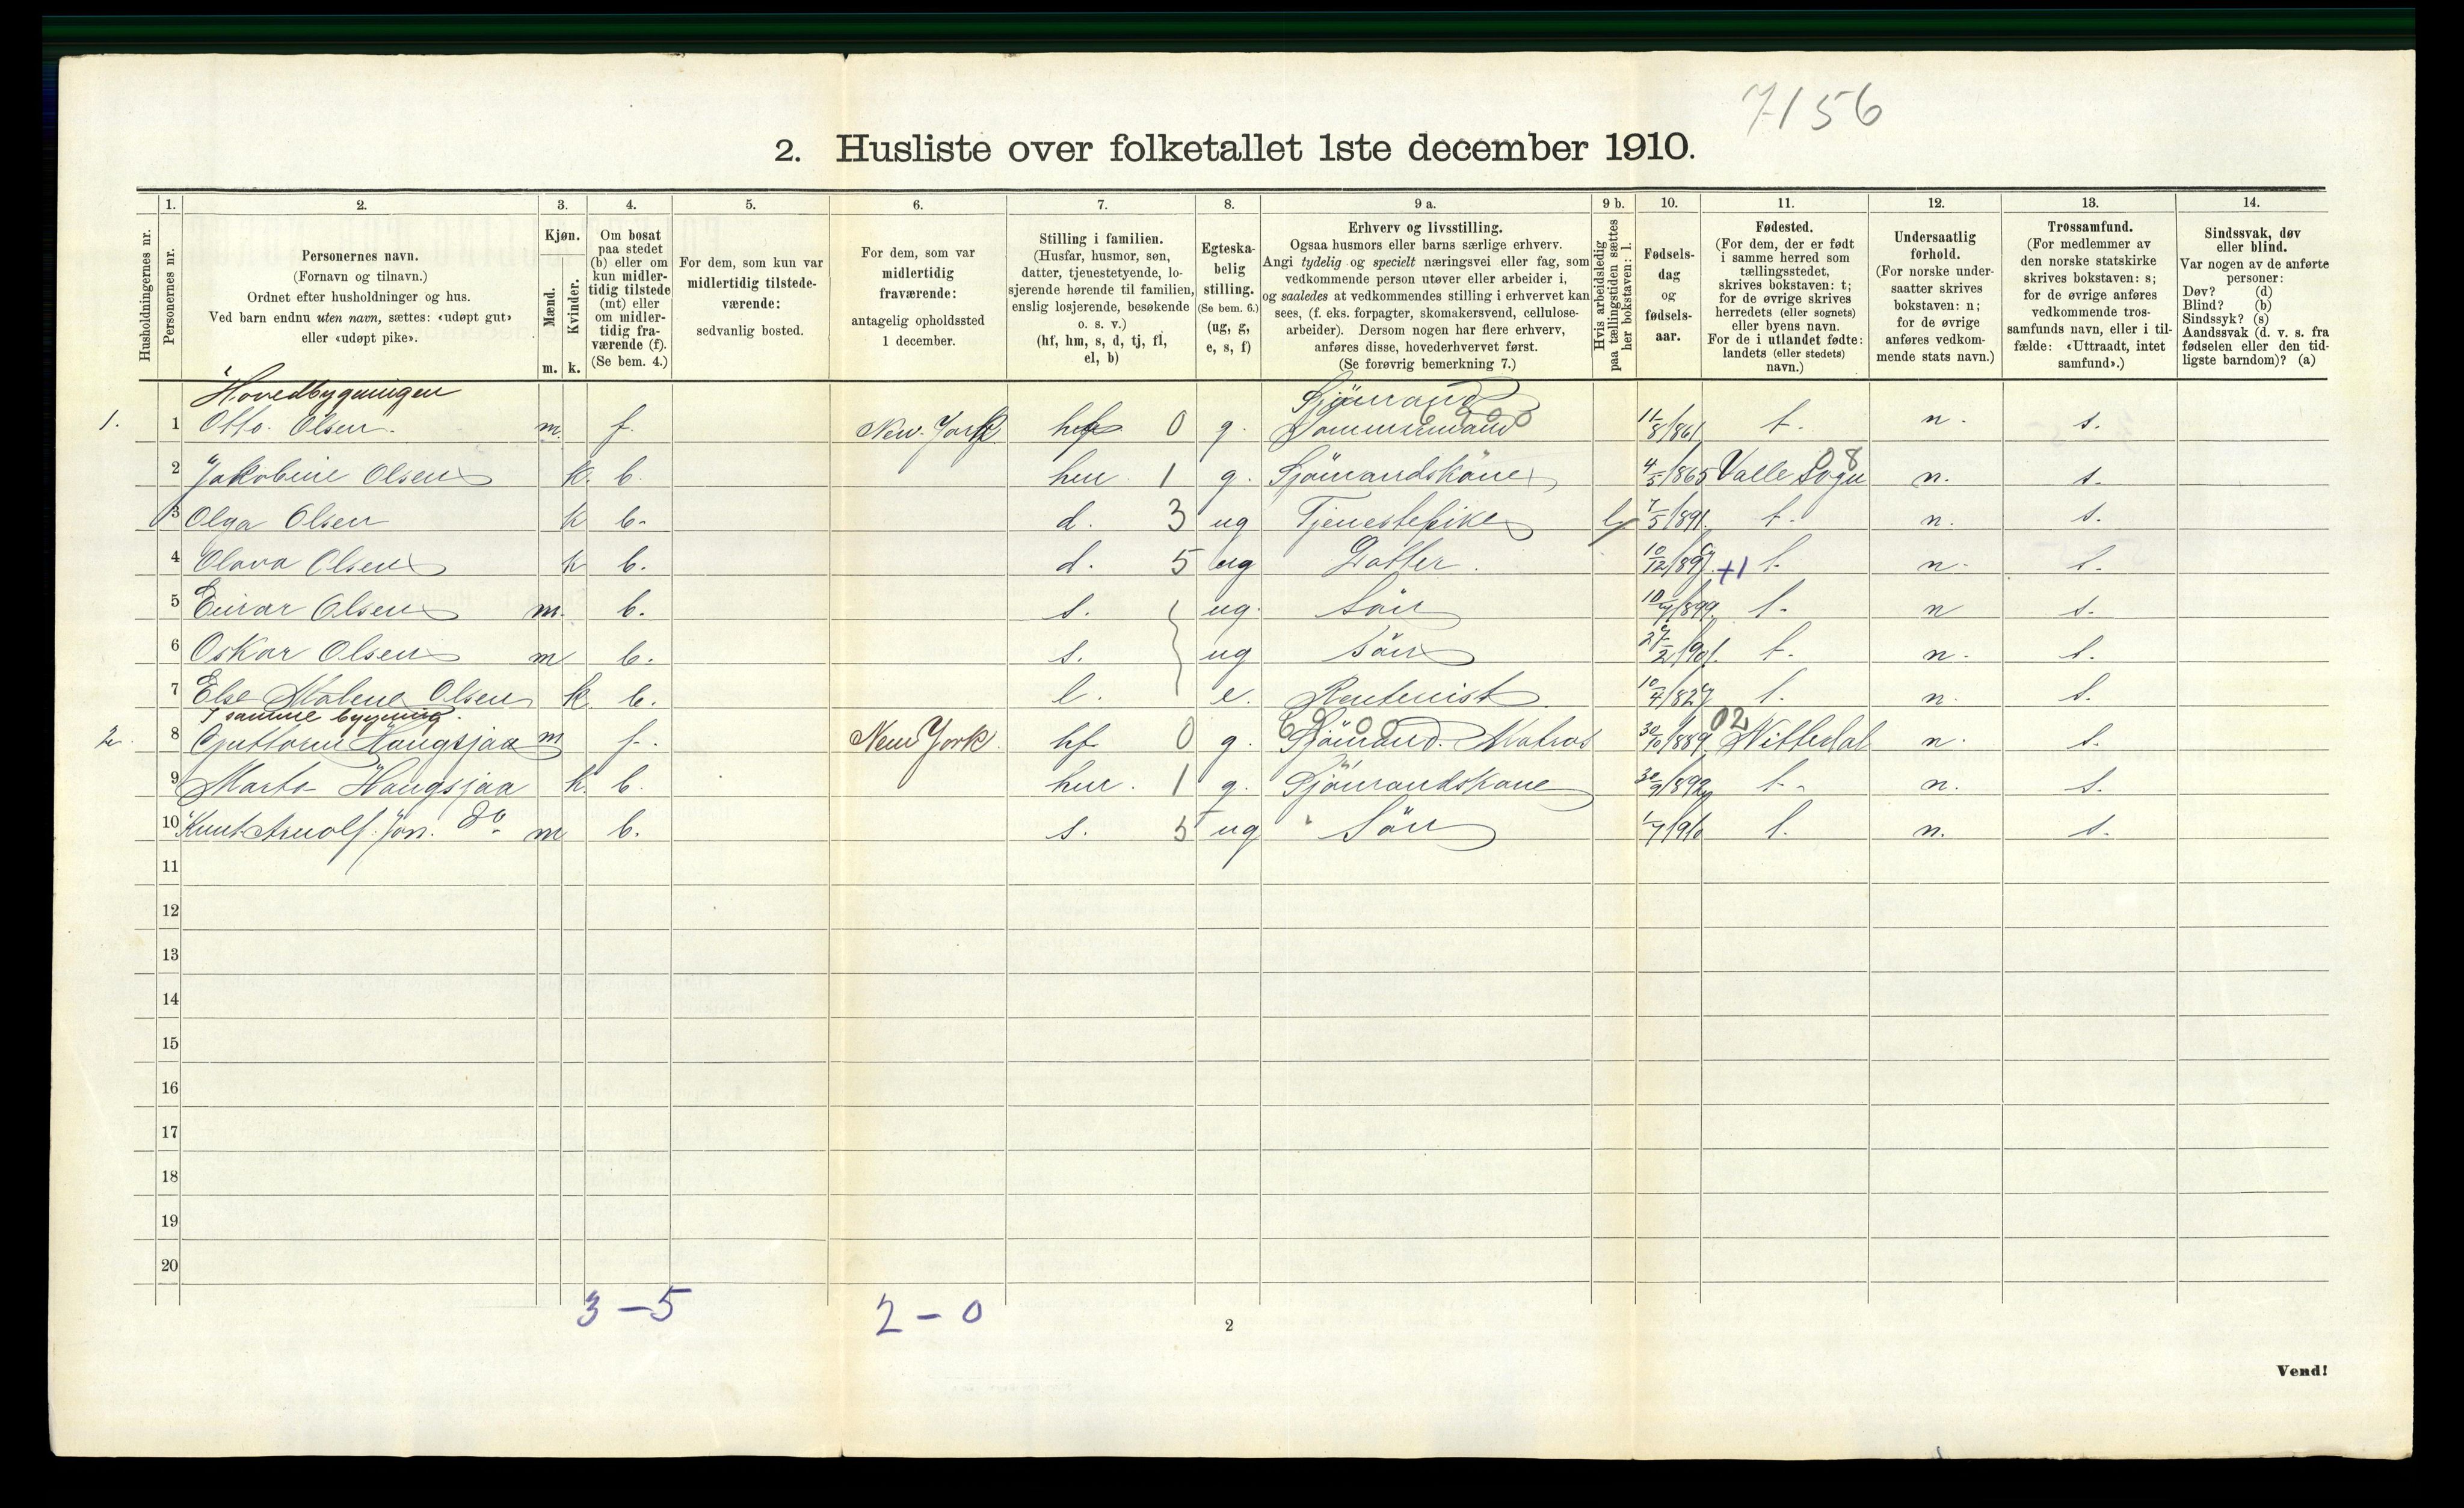 7156
2. Husliste over folketallet 1ste december 1910.
1. 2. 3. 4. 5. 6. 7. 8. 9 a. 9 b. 10. 11. 12. 13. 14.
Husholdningernes nr.
Personernes nr.
Personernes navn.
(Fornavn og tilnavn.)
Ordnet efter husholdninger og hus.
Ved barn endnu uten navn, sættes: «udøpt gut»
eller «udøpt pike».
Kjøn.
Mænd.
Kvinder.
m. k.
Om bosat
paa stedet
(b) eller om
kun midler-
tidig tilstede
(mt) eller
om midler-
tidig fra-
værende (f).
(Se bem. 4.)
For dem, som kun var
midlertidig tilstede-
værende:
sedvanlig bosted.
For dem, som var
midlertidig
fraværende:
antagelig opholdssted
1 december.
Stilling i familien.
(Husfar, husmor, søn,
datter, tjenestetyende, lo-
sjerende hørende til familien,
enslig losjerende, besøkende
o. s. v.)
(hf, hm, s, d, tj, fl,
el, b)
Egteska-
belig
stilling.
(Se bem. 6.)
(ug, g,
e, s, f)
Erhverv og livsstilling.
Ogsaa husmors eller barns særlige erhverv.
Angi tydelig og specielt næringsvei eller fag, som
vedkommende person utøver eller arbeider i,
og saaledes at vedkommendes stilling i erhvervet kan
sees, (f. eks. forpagter, skomakersvend, cellulose-
arbeider). Dersom nogen har flere erhverv,
anføres disse, hovederhvervet først.
(Se forøvrig bemerkning 7.)
Hvis arbeidsledig
paa tællingstiden sættes
her bokstaven: l.
Fødsels-
dag
og
fødsels-
aar.
Fødested.
(For dem, der er født
i samme herred som
tællingsstedet,
skrives bokstaven: t;
for de øvrige skrives
herredets (eller sognets)
eller byens navn.
For de i utlandet fødte:
landets (eller stedets)
navn.)
Undersaatlig
forhold.
(For norske under-
saatter skrives
bokstaven: n;
for de øvrige
anføres vedkom-
mende stats navn.)
Trossamfund.
(For medlemmer av
den norske statskirke
skrives bokstaven: s;
for de øvrige anføres
vedkommende tros-
samfunds navn, eller i til-
fælde: «Uttraadt, intet
samfund».)
Sindssvak, døv
eller blind.
Var nogen av de anførte
personer:
Døv? (d)
Blind? (b)
Sindssyk? (s)
Aandssvak (d. v. s. fra
fødselen eller den tid-
ligste barndom)? (a)
Hovedbygningen Sjömand
1. 1 Otto Olsen. m. f. New York hf 0 g. Tømmermand 11/8/861 t. n. s.
2 Jakobine Olsen k. b. hm. 1 g. Sjömandskone 4/5/865 Valle Sogn 08 n. s.
3 Olga Olsen k b. d. 3 ug Tjenestepike l 7/5/891. t. n. s.
4 Olava Olsen k b. d. 5 ug Datter. 10/12/897. +1 t. n. s.
5 Einar Olsen m. b. s. ug. Sön 10/7/899. t. n s.
6 Oskar Olsen m b. s. ug Sön 27/2/901. t. n. s.
7 Else Malene Olsen k. b. l. e. Rentenist 10/4/827 t. n. s.
I samme bygning.
2. 8 Guttorm Haugsjaa m f. New York. hf 0 g. Sjömand. Matros 30/10/889 02 Hitterdal n. s.
9 Marta Haugsjaa k. b. hm. 1 g. Sjömandskone 30/9/892 t. n. s.
10 Knut Arnolf Jon. do m b. s. 5 ug Sön 1/7/910 t. n. s.
11
12
13
14
15
16
17
18
19
20
3 – 5 2 – 0
2
Vend!